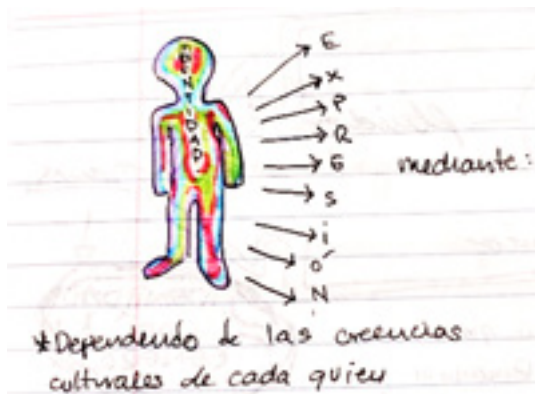 IDENTIDAD
EXPRESIÓN
mediante:
*Dependendo de las creencias
culturales de cada quien